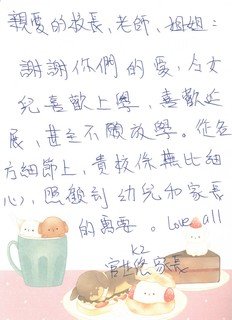 親愛的校長、老師、姐姐：
謝謝你們的愛，令女
兒喜歡上學，喜歡延
展，甚至不願放學。從各
方細節上，貴校保無比細
心，照顧到幼兒和家長
的需要。Love all
K2
家長